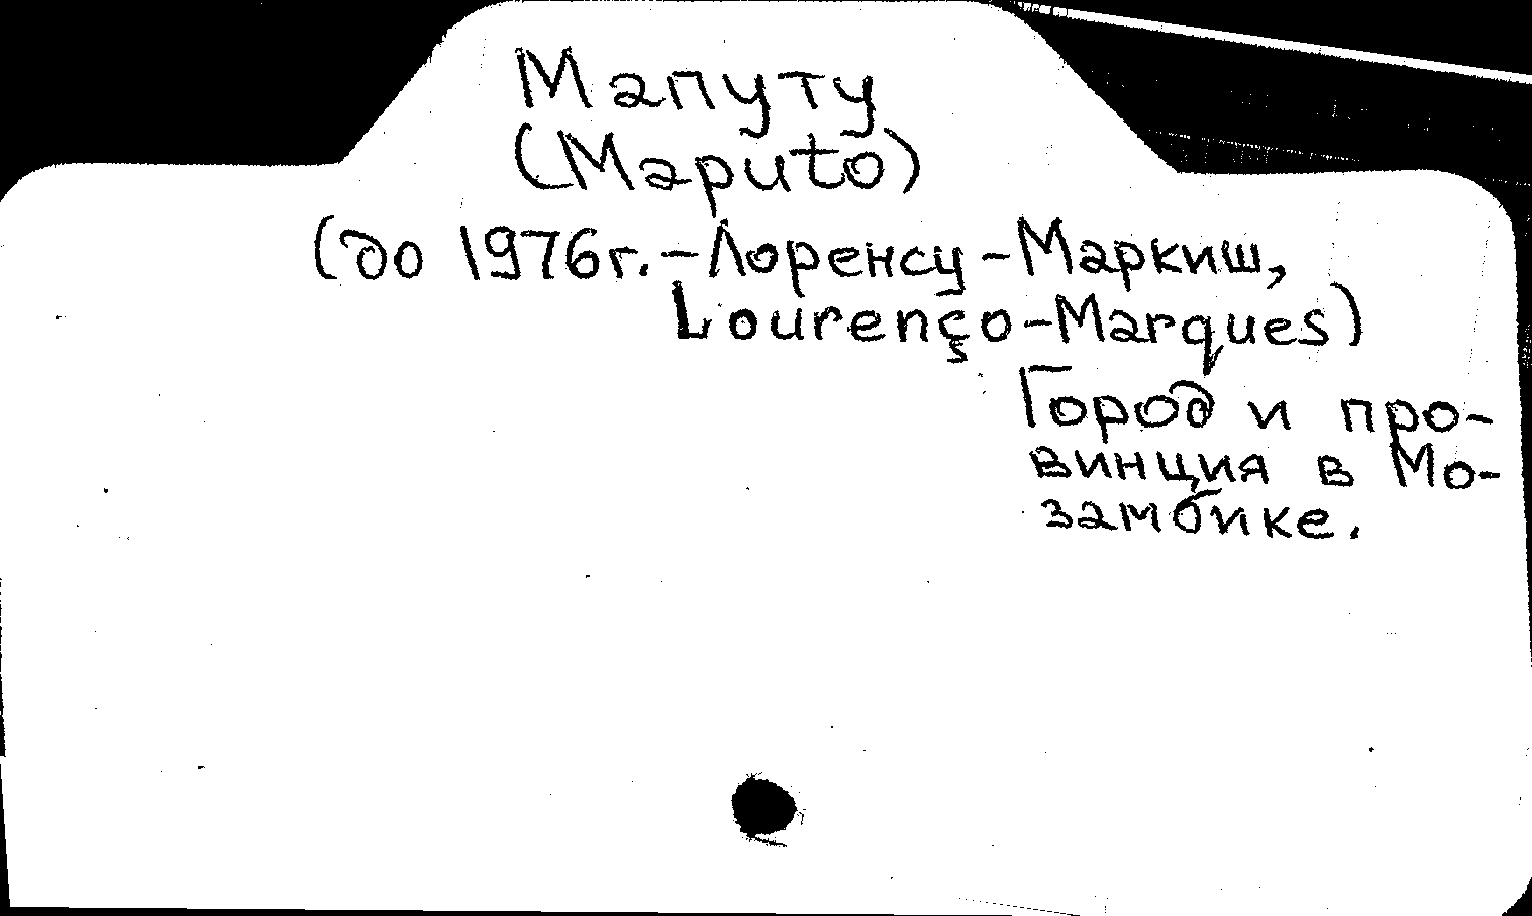 Мапуту
(Maputo)
(до 1976г.-Лоренсу-Маркиш,
Lourenço-Marques)
Город и про-
винция в Мо-
замбике.